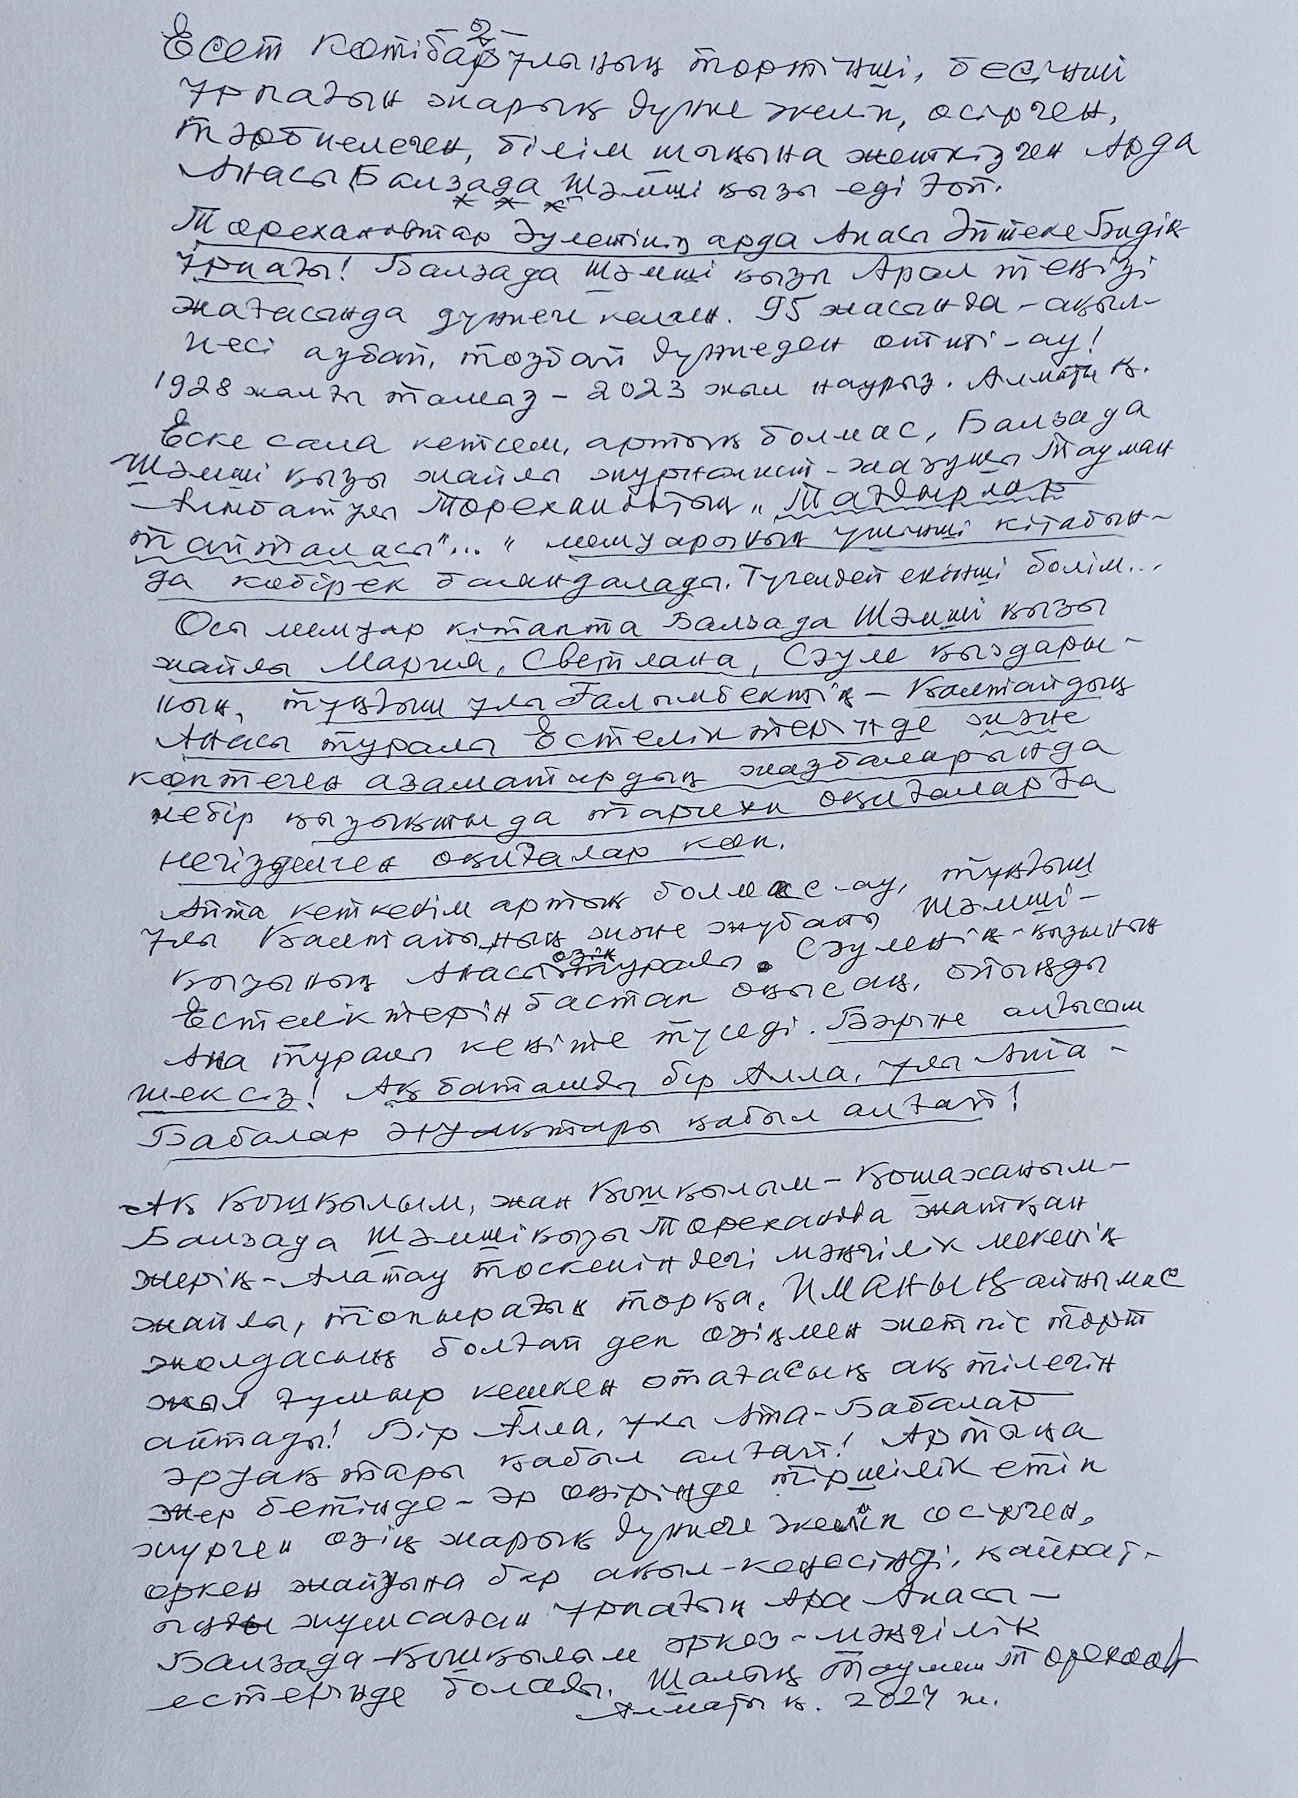 Есет Көтібарұлының төртінші, бесінші
ұрпағын жарық дүние әкеліп, өсірген,
тәрбиелеген, білім шыңына жеткізген Арда
Анасы Балзада Шәмші қызы еді ғой.
Төрехановтар әулетінің арда Анасы Әйтеке Бидің
ұрпағы! Балзада Шәмші қызы Арал теңізі
жағасында дүниеге келген. 95 жасында - ақыл-
несі аубай, тозбай дүниеден өтті-ау!
1928 жылғы тамыз - 2023 жыл наурыз. Алматы қ.
Еске сала кетсем, артық болмас, Балзада
Шәмші қызы жайлы журналист-жазушы Тауман
Төрехановтың "Тағдырлар
тайталасы"... " мемуарының үшінші кітабын-
да көбірек баяндалады. Түгелдей екінші бөлім...
Осы мемуар кітапта Балзада Шәмші қызы
жайлы Мария, Светлана, Сәуле қыздары-
ның, тұңғыш ұлы Ғалымбектің - Қалтайдың
Анасы туралы Естеліктерінде және
көптеген азаматтардың жазбаларында
небір қызықты да тарихи оқиғаларға
негізделген оқиғалар көп.
Айта кеткенім артық болмас-ау, тұңғыш
ұлы Қалтайының және жұбайы Шәмші-
қызының Анасы өзің туралы Сәуленің-қызының
Естеліктерін бастап оқысаң, ойыңды
Ана туралы кеңіте түседі. Бәріне алғысым
шексіз! Ақ батамды бір Алла, ұлы Ата-
Бабалар әруақтары қабыл алғай!
Ақ Қошқылым, жан Қошқылым - Қошаханым-
Балзада Шәмшіқызы Төреханова жатқан
жерің - Алатау төскеніндегі мәңгілік мекенің
жайлы, топырағың торқа, ИМАНЫҢ айнымас
жолдасың болғай деп өзіңмен жетпіс төрт
жыл ғұмыр кешкен отағасың ақ тілегін
айтады! Бір Алла, ұлы Ата-Бабалар
әруақтары қабыл алғай! Артыңа
жер бетінде - әр өңірінде тіршілік етіп
жүрген өзің жарық дүниеге әкеліп өсірген,
өркен жайуына бар ақыл-кеңесіңді, қайрат-
ыңды жұмсаған ұрпағың Ара Анасы -
Балзада-Қошқылым әркез - мәңгілік
естерінде болады. Шалың Тауман Төреханов
Алматы қ. 2024 ж.